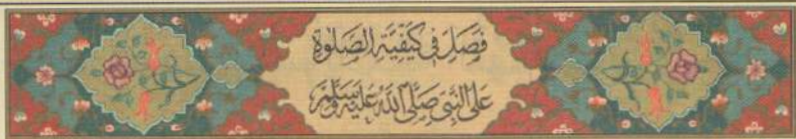 فَصْلٌ فِي كَيْفِيَّةِ الصَّلٰوةِ
عَلَى النَّبِيِّ صَلَّى اللّٰهُ عَلَيْهِ وَسَلَّمَ